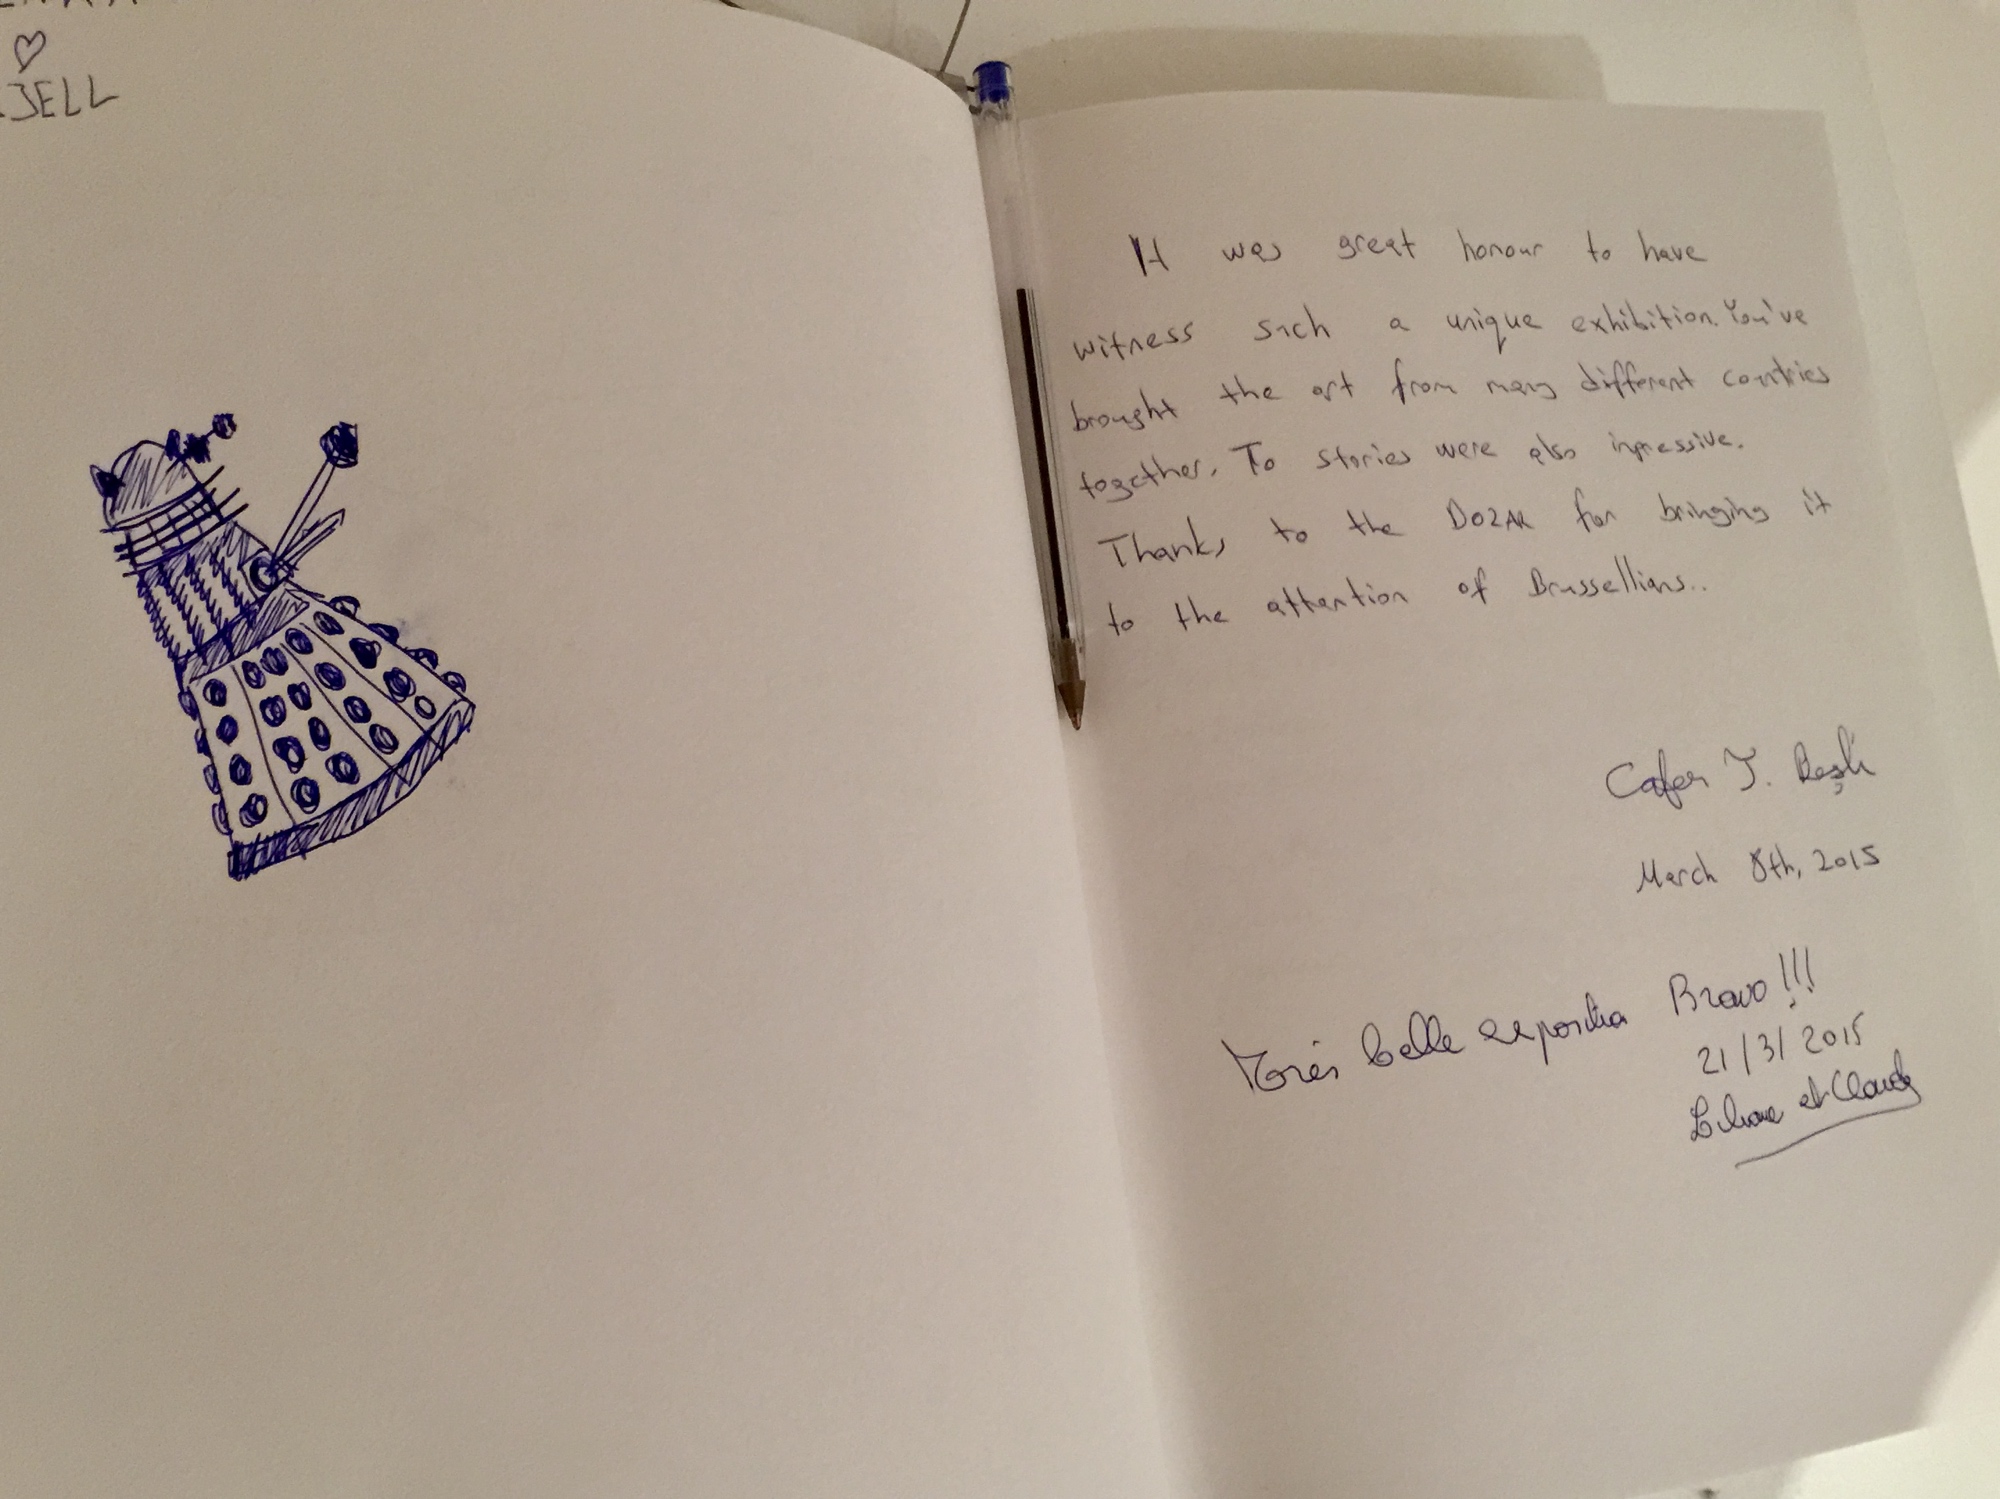 ♡
JELL
It was great honour to have
witness such a unique exhibition. You've
brought the art from many different countries
together. To stories were also inpressive.
Thanks to the DOZAR for bringing it
to the attention of Brussellians..
Cafer T.
March 8th, 2015
Très belle Bravo!!!
21/3/2015
et Claude